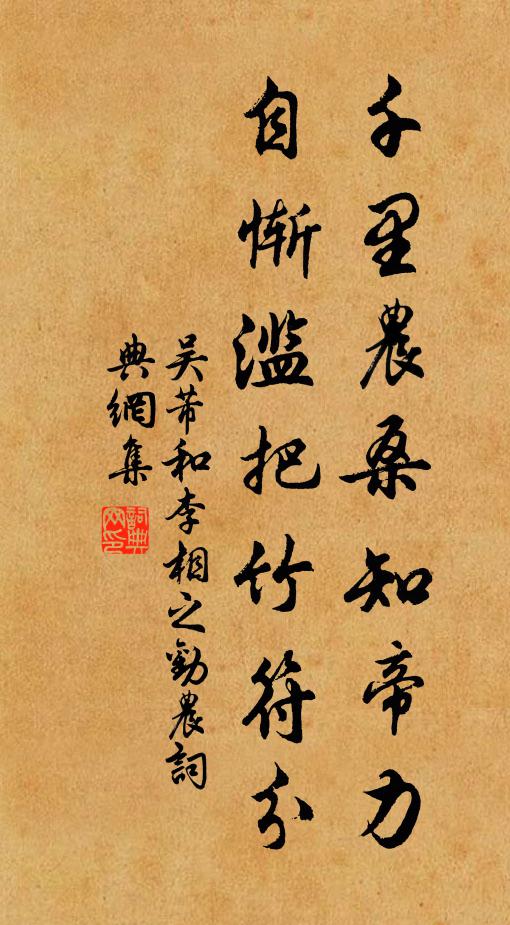 千里農桑知帝力
自慚濫把竹符分
吳芾和李相之勸農詞
典網集
詞典网印